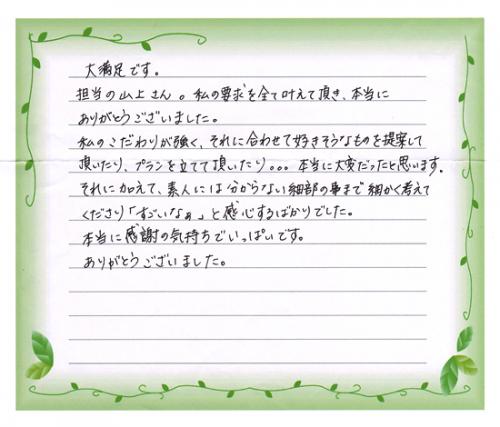 大満足です。
担当の山上さん。私の要求を全て叶えて頂き、本当に
ありがとうございました。
私のこだわりが強く、それに合わせて好きそうなものを提案して
頂いたり、プランを立てて頂いたり。。。本当に大変だったと思います。
それに加えて、素人には分からない細部の事まで細かく考えて
くださり「すごいなぁ」と感心するばかりでした。
本当に感謝の気持ちでいっぱいです。
ありがとうございました。